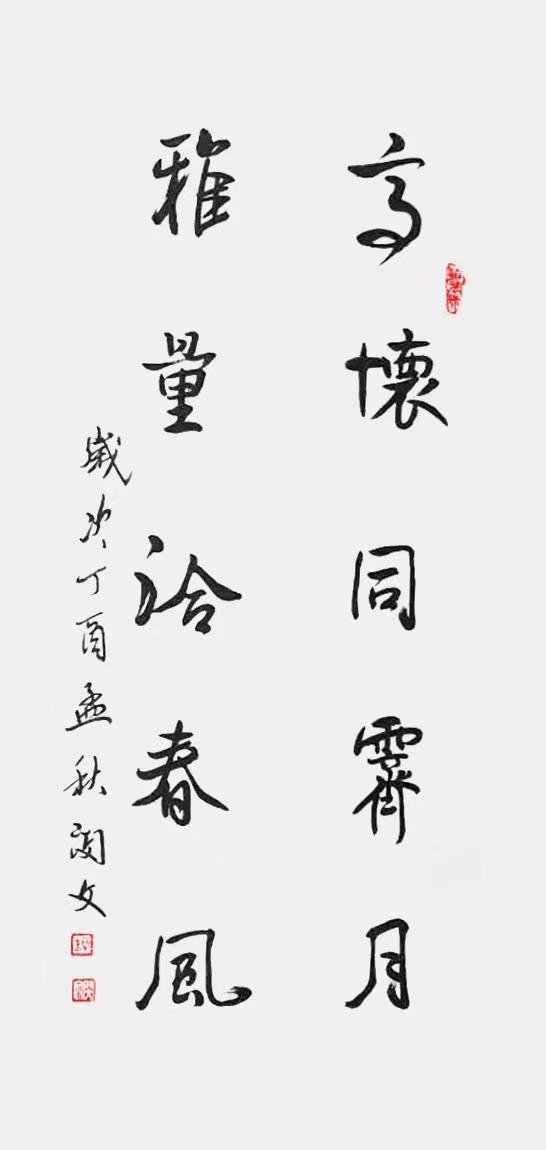 高懷同霽月
雅量洽春風
歲次丁酉孟秋閲文